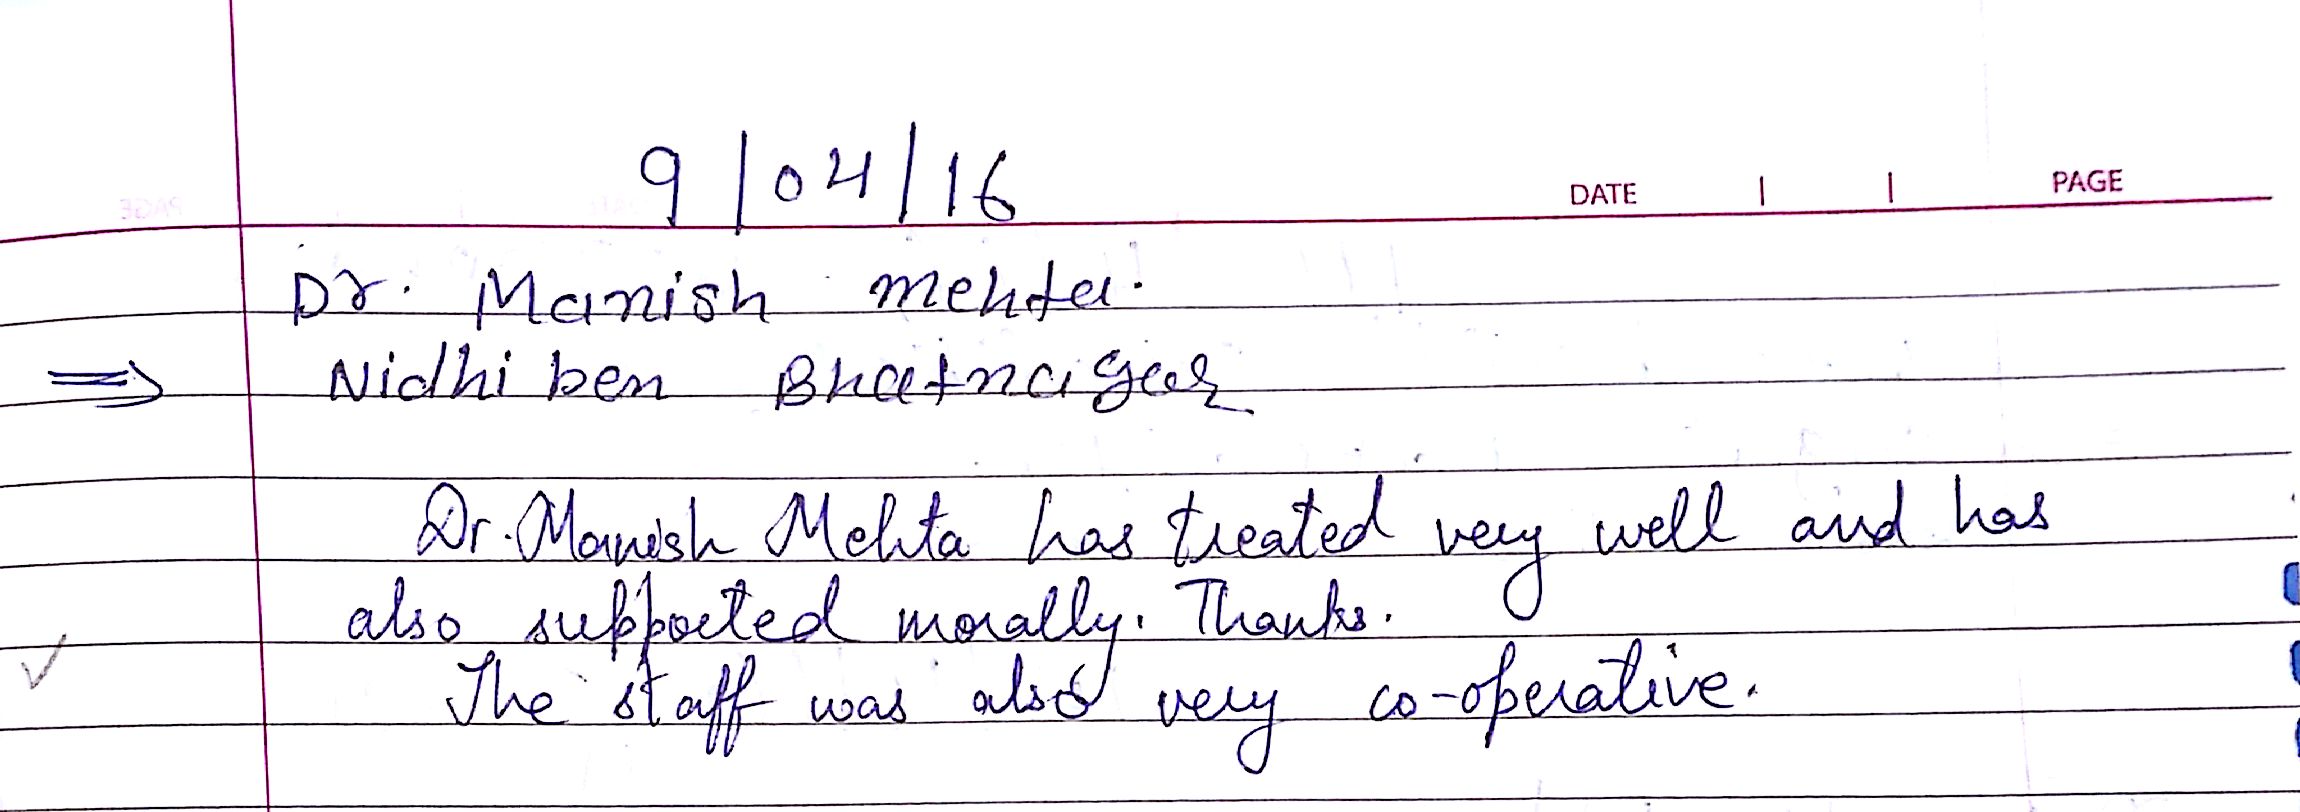 9/04/16
DATE | | PAGE
Dr. Manish mehta.
⇒ Nidhi ben Bhatnagar
Dr. Manish Mehta has treated very well and has
also supported morally. Thanks.
✓ The staff was also very co-operative.